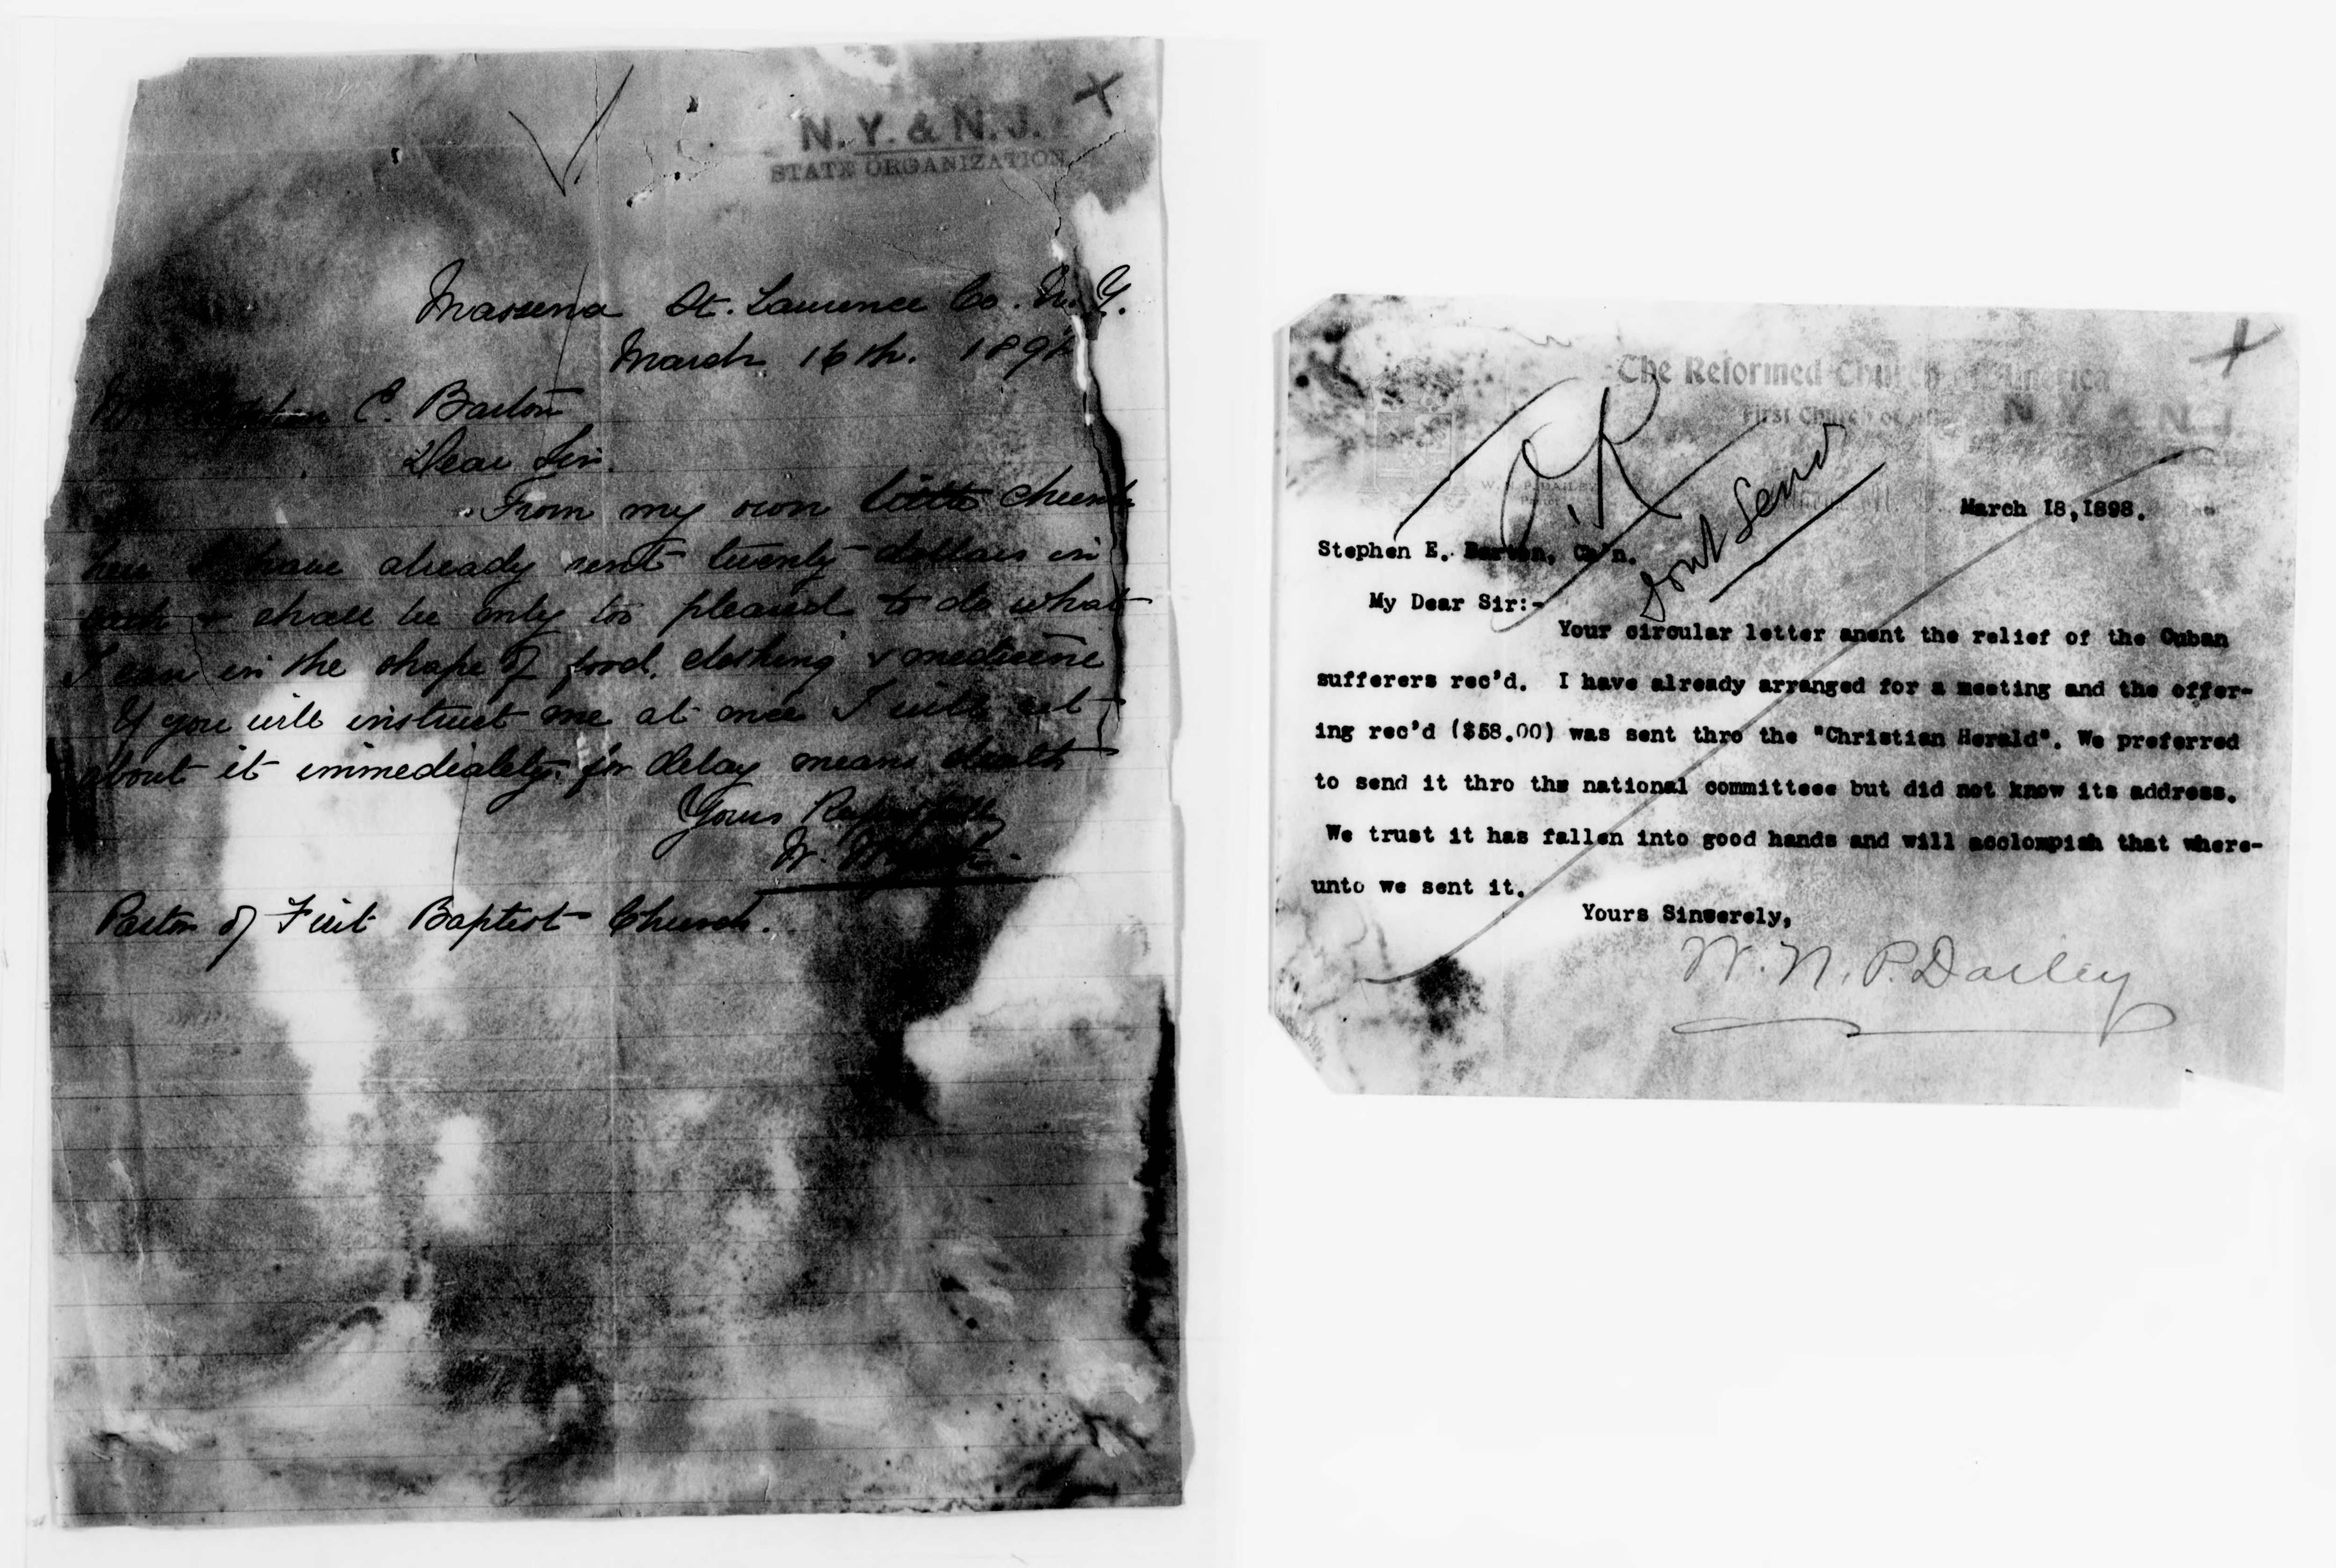 N. Y. & N. J.
STATE ORGANIZATION
Massena St. Lawrence Co. N. Y.
March 16th. 189
Stephen E. Barton
Dear Sir.
From my own little church
here I have already sent twenty dollars in
cash & shall be only too pleased to do what
I can in the shape of food, clothing & medicine
If you will instruct me at once I will set
about it immediately, for delay means death
Yours Respectfully
W.
Pastor of First Baptist Church.
The Reformed Church of America
First Church of
N. Y. & N. J.
O.K
dont send
March 18,1898.
Stephen E. Barton, Ch'n.
My Dear Sir:-
Your circular letter anent the relief of the Cuban
sufferers rec'd. I have already arranged for a meeting and the offer-
ing rec'd ($58.00) was sent thro the "Christian Herald". We preferred
to send it thro the national committeee but did not know its address.
We trust it has fallen into good hands and will acclompish that where-
unto we sent it.
Yours Sincerely,
W. N. P. Dailey